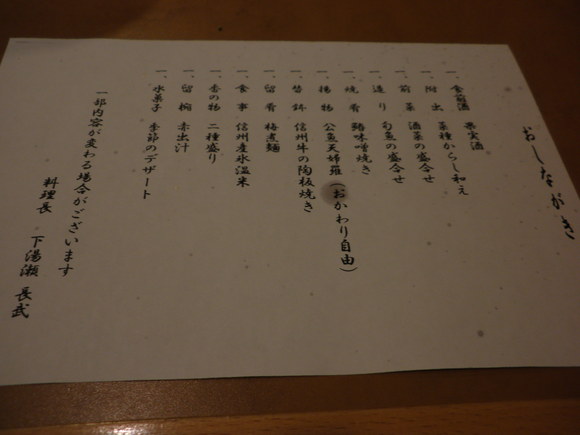 おしながき
一、食前酒 果実酒
一、附出 菜種からし和え
一、前菜 酒菜の盛合せ
一、造り 旬魚の盛合せ
一、焼肴 味噌焼き
一、揚物 公魚天婦羅(おかわり自由)
一、替鉢 信州牛の陶板焼き
一、留肴 煮麺
一、食事 信州産氷温米
一、香の物 二種盛り
一、留椀 赤出汁
一、水菓子 季節のデザート
一部内容が変わる場合がございます
料理長 下湯瀬 長武